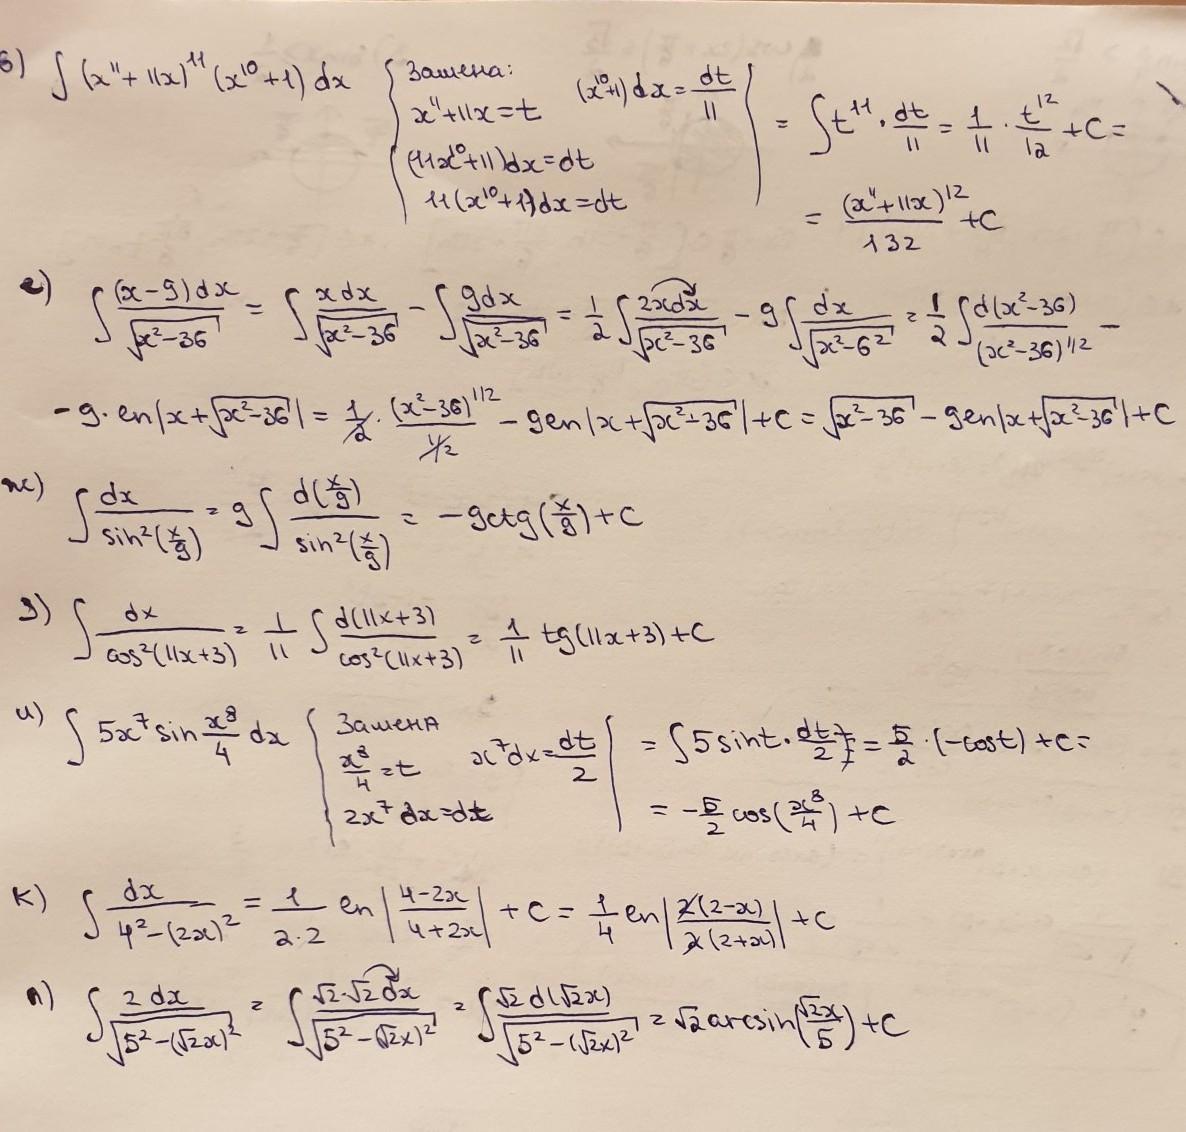 б) ∫ (x¹¹ + 11x)¹¹ (x¹⁰ + 1) dx { Замена: x¹¹ + 11x = t (11x¹⁰ + 11)dx = dt 11(x¹⁰ + 1)dx = dt (x¹⁰+1)dx = dt/11 | = ∫ t¹¹ · dt/11 = 1/11 · t¹²/12 + C =
= (x¹¹ + 11x)¹²/132 + C
е) ∫ (x-9)dx/√(x²-36) = ∫ xdx/√(x²-36) - ∫ 9dx/√(x²-36) = 1/2 ∫ 2xdx/√(x²-36) - 9∫ dx/√(x²-6²) = 1/2 ∫ d(x²-36)/(x²-36)^(1/2) -
- 9 · ln|x+√(x²-36)| = 1/2 · (x²-36)^(1/2)/(1/2) - 9ln|x+√(x²-36)| + C = √(x²-36) - 9ln|x+√(x²-36)| + C
ж) ∫ dx/sin²(x/9) = 9∫ d(x/9)/sin²(x/9) = -9ctg(x/9) + C
з) ∫ dx/cos²(11x+3) = 1/11 ∫ d(11x+3)/cos²(11x+3) = 1/11 tg(11x+3) + C
и) ∫ 5x⁷ sin x⁸/4 dx { Замена x⁸/4 = t 2x⁷dx = dt x⁷dx = dt/2 | = ∫ 5 sint · dt/2 = 5/2 · (-cost) + C =
= -5/2 cos(x⁸/4) + C
к) ∫ dx/(4²-(2x)²) = 1/(2·2) ln|(4-2x)/(4+2x)| + C = 1/4 ln|2(2-x)/2(2+x)| + C
л) ∫ 2dx/√(5²-(√2x)²) = ∫ √2·√2dx/√(5²-(√2x)²) = ∫ √2 d(√2x)/√(5²-(√2x)²) = √2 arcsin(√2x/5) + C